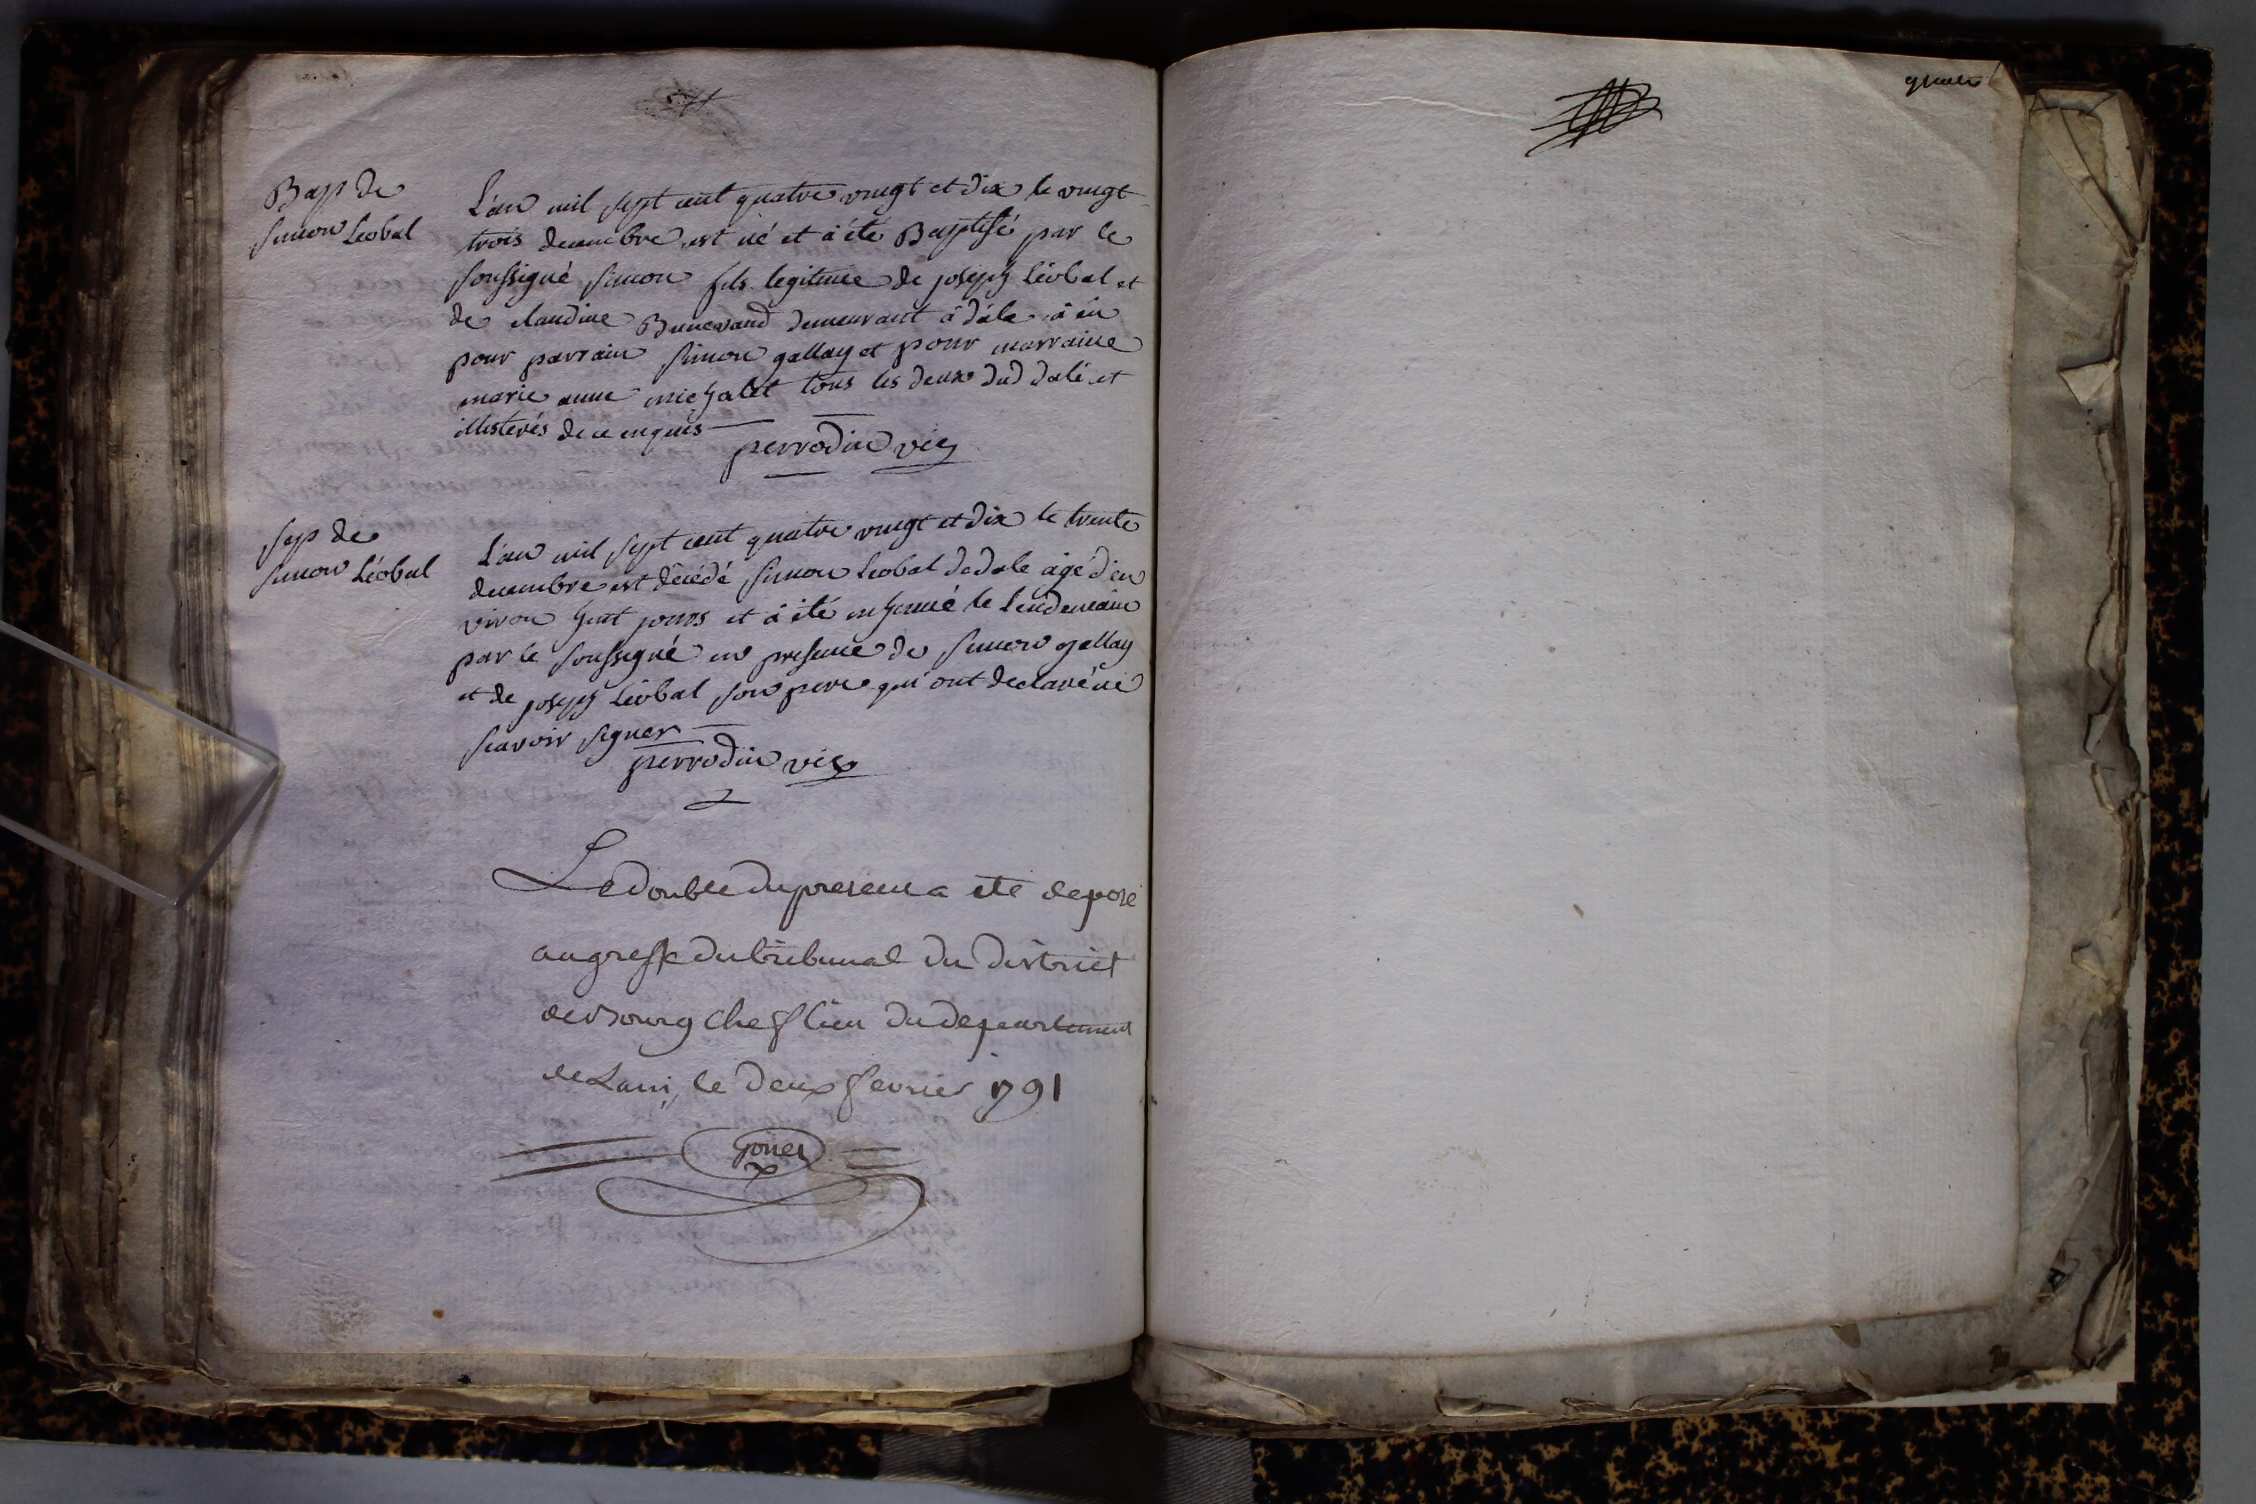 Bapt de
simon Léobal
L'an mil sept cent quatre vingt et dix le vingt
trois decembre est né et à été Baptisé par le
soussigné simon fils legitime de joseph Léobal et
de claudine demeurant à dále à éu
pour parrain simon gallay et pour marraine
marie anne michalet tous les deux dud dalé et
illiterés de ce enquis
perrodin vic
sep de
simon Léobal
L'an mil sept cent quatre vingt et dix le trente
decembre est décédé simon Leobal de dale agé d'en
viron huit jours et à été inhumé le lendemain
par le soussigné en presence de simon gallay
et de joseph Léobal son pere qui ont declaré né
scavoir signer
perrodin vic
Le double du present a eté deposé
au greffe du tribunal du district
de Bourg chef lieu du departement
de Lain, le deux fevrier 1791